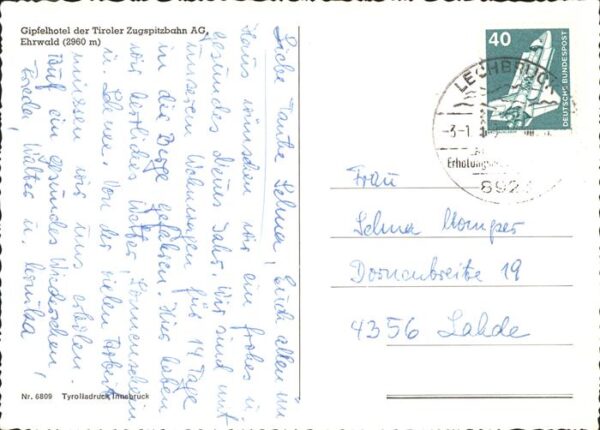 Gipfelhotel der Tiroler Zugspitzbahn AG,
Ehrwald (2960 m)
Liebe Tante Selma, Euch allen im
Haus wünschen wir ein frohes u.
gesundes Neues Jahr. Wir sind mit
unserem Wohnwagen für 14 Tage
in die Berge gefahren. Hier haben
wir herrliches Wetter, Sonnenschein
u. Schnee. Von der vielen Arbeit
müssen wir uns erholen.
Auf ein gesundes Wiedersehen,
Frieda, Walter u. Monika
Nr. 6809 Tyroliadruck Innsbruck
40
DEUTSCHE BUNDESPOST
LECHBRUCK
-3-1
Erholungs
892
Frau
Selma Momper
Dornenbreite 19
4356 Lahde